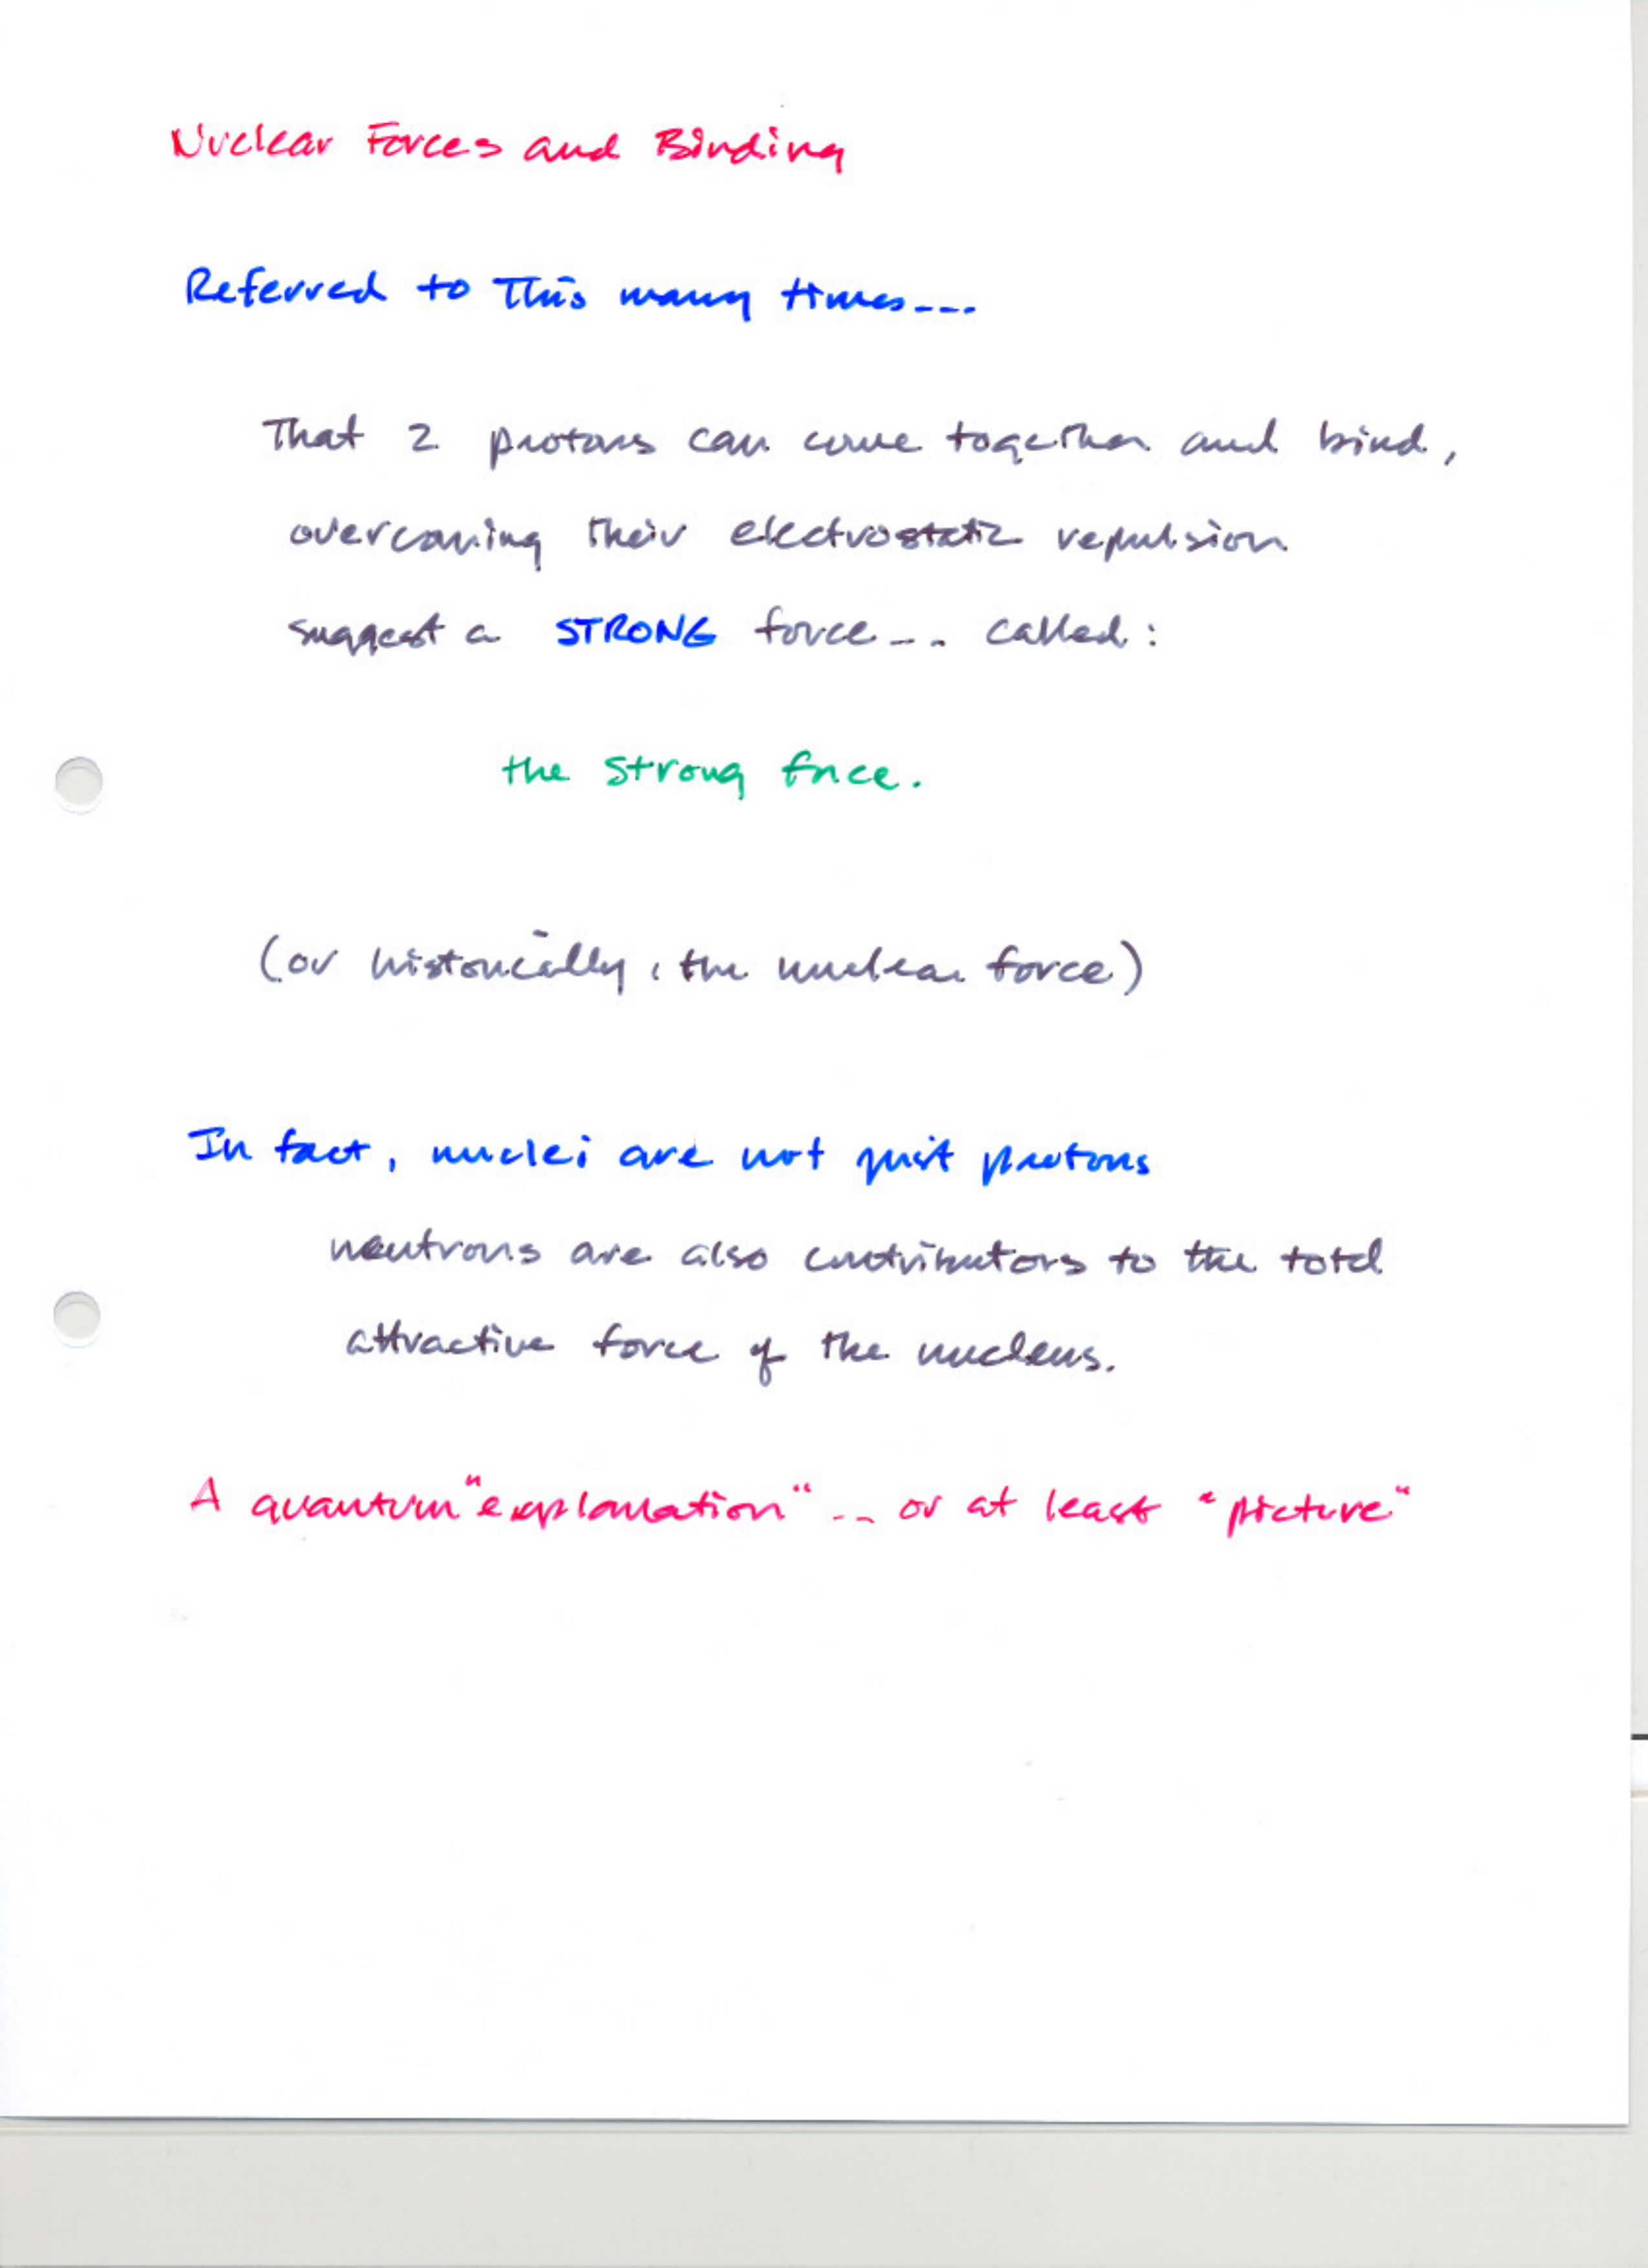 Nuclear Forces and Binding
Referred to This many times---
That 2 protons can come together and bind,
overcoming their electrostatic repulsion
suggest a STRONG force--. called:
the strong force.
(or historically, the nuclear force)
In fact, nuclei are not just protons
neutrons are also contributors to the total
attractive force of the nucleus.
A quantum "explanation" -- or at least "picture"